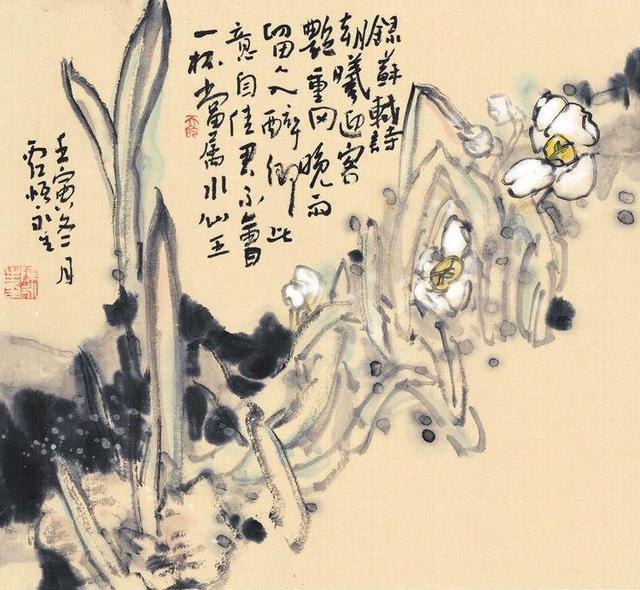 錄蘇軾詩
朝曦迎客
艷重冈晚雨
留人入醉鄉此
意自佳君不會
一杯當屬水仙王
壬寅二月